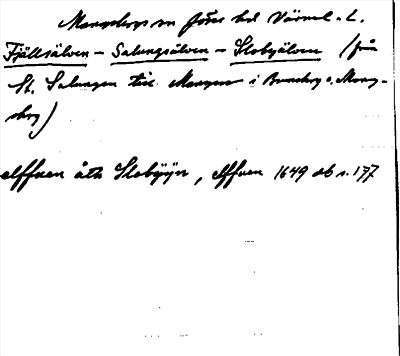 Mangskogs sn Jösse hd Värml. l.
Fjällsälven - Salungsälven - Slobyälven (från
St. Salungen till Mangen i Brunskog o. Mang-
skog)
elffuen åth Slobÿÿn, elffuen 1649 ab s. 177